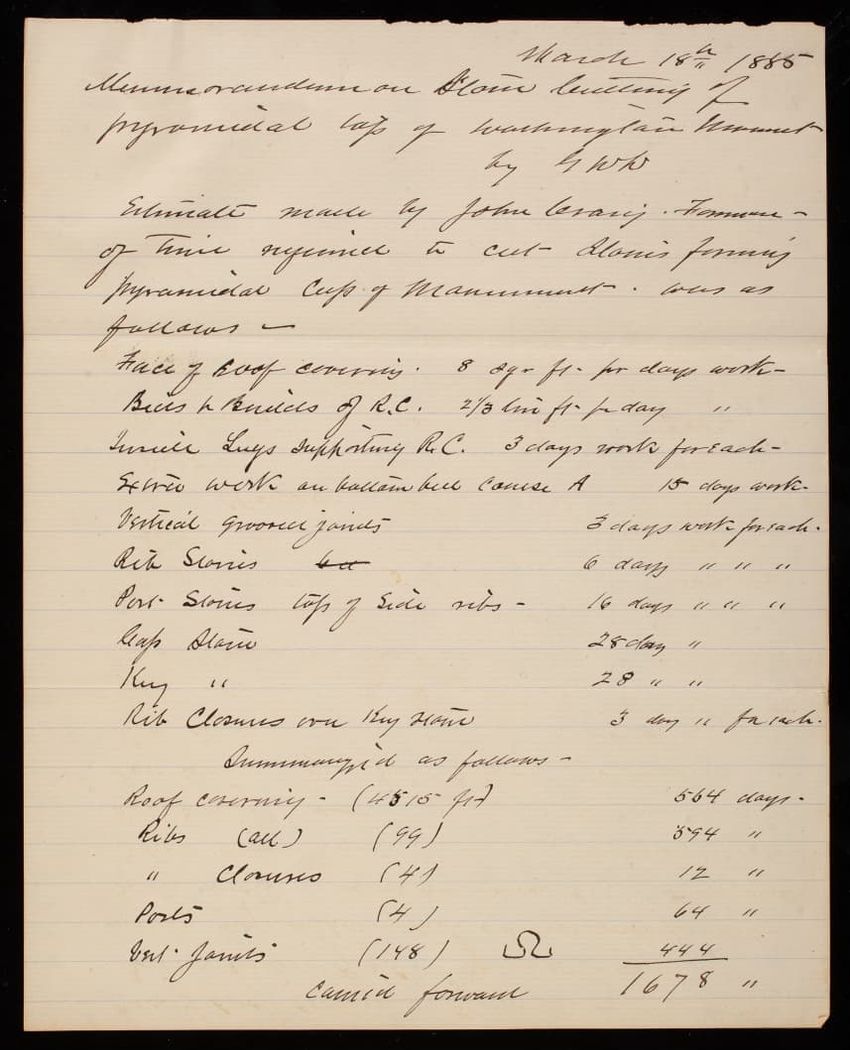 March 18th 1885
Memorandum on Stone Cutting of
pyramidal top of Washington Monument
by G W D
Estimate made by John Craig. Foreman -
of time required to cut stones forming
pyramidal Cap of Monument. was as
follows -
Face of Roof covering. 8 sqr ft. pr days work -
Beds & Builds of R.C. 2/3 lin ft pr day "
Inside Lugs supporting R.C. 3 days work for each -
Extra work on bottom bed course A 15 days work -
Vertical grooved joints 3 days work for each.
Rib Stones 6 days " " "
Post Stones top of side ribs - 16 days " " "
Cap Stone 28 day "
Key " 28 " "
Rib Closures over Key stone 3 day " for each.
Summarized as follows -
Roof covering - (4515 ft) 564 days -
Ribs (all) (99) 594 "
" Closures (4) 12 "
Posts (4) 64 "
Vert. Joints (148) 444
carried forward 1678 "